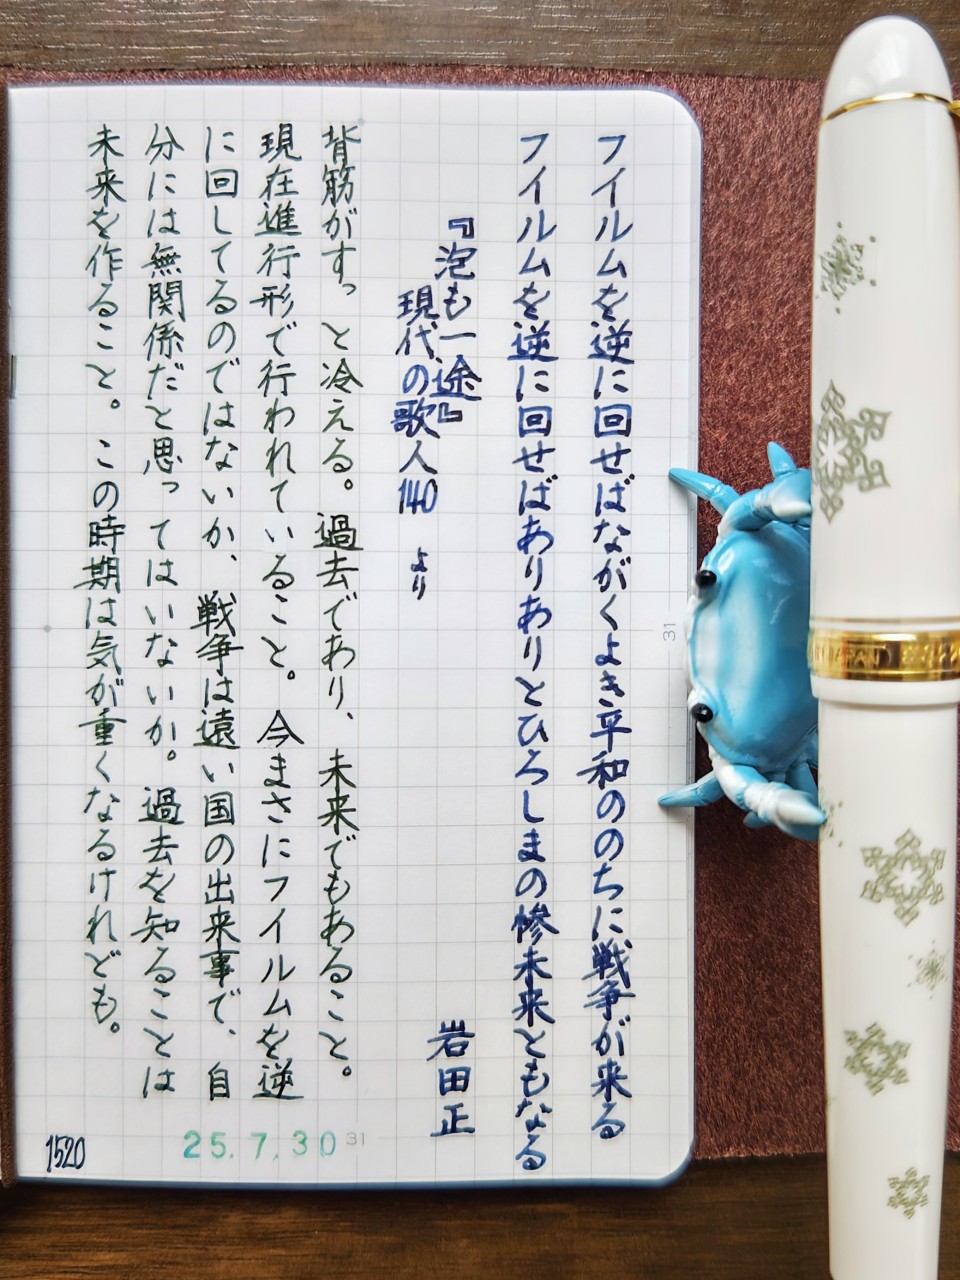 フイルムを逆に回せばながくよき平和ののちに戦争が来る
フイルムを逆に回せばありありとひろしまの惨未来ともなる
『泡も一途』
岩田正
現代の歌人140 より
背筋がすっと冷える。過去であり、未来でもあること。
現在進行形で行われていること。今まさにフイルムを逆
に回してるのではないか、戦争は遠い国の出来事で、自
分には無関係だと思ってはいないか。過去を知ることは
未来を作ること。この時期は気が重くなるけれども。
25.7.30
31
31
1520